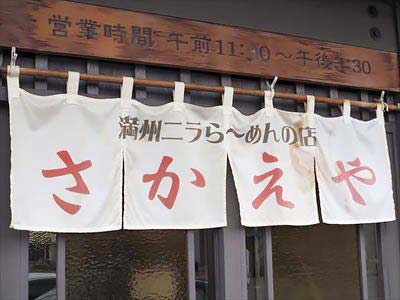 営業時間 午前11:00～午後3:30
満州ニラら～めんの店
さかえや